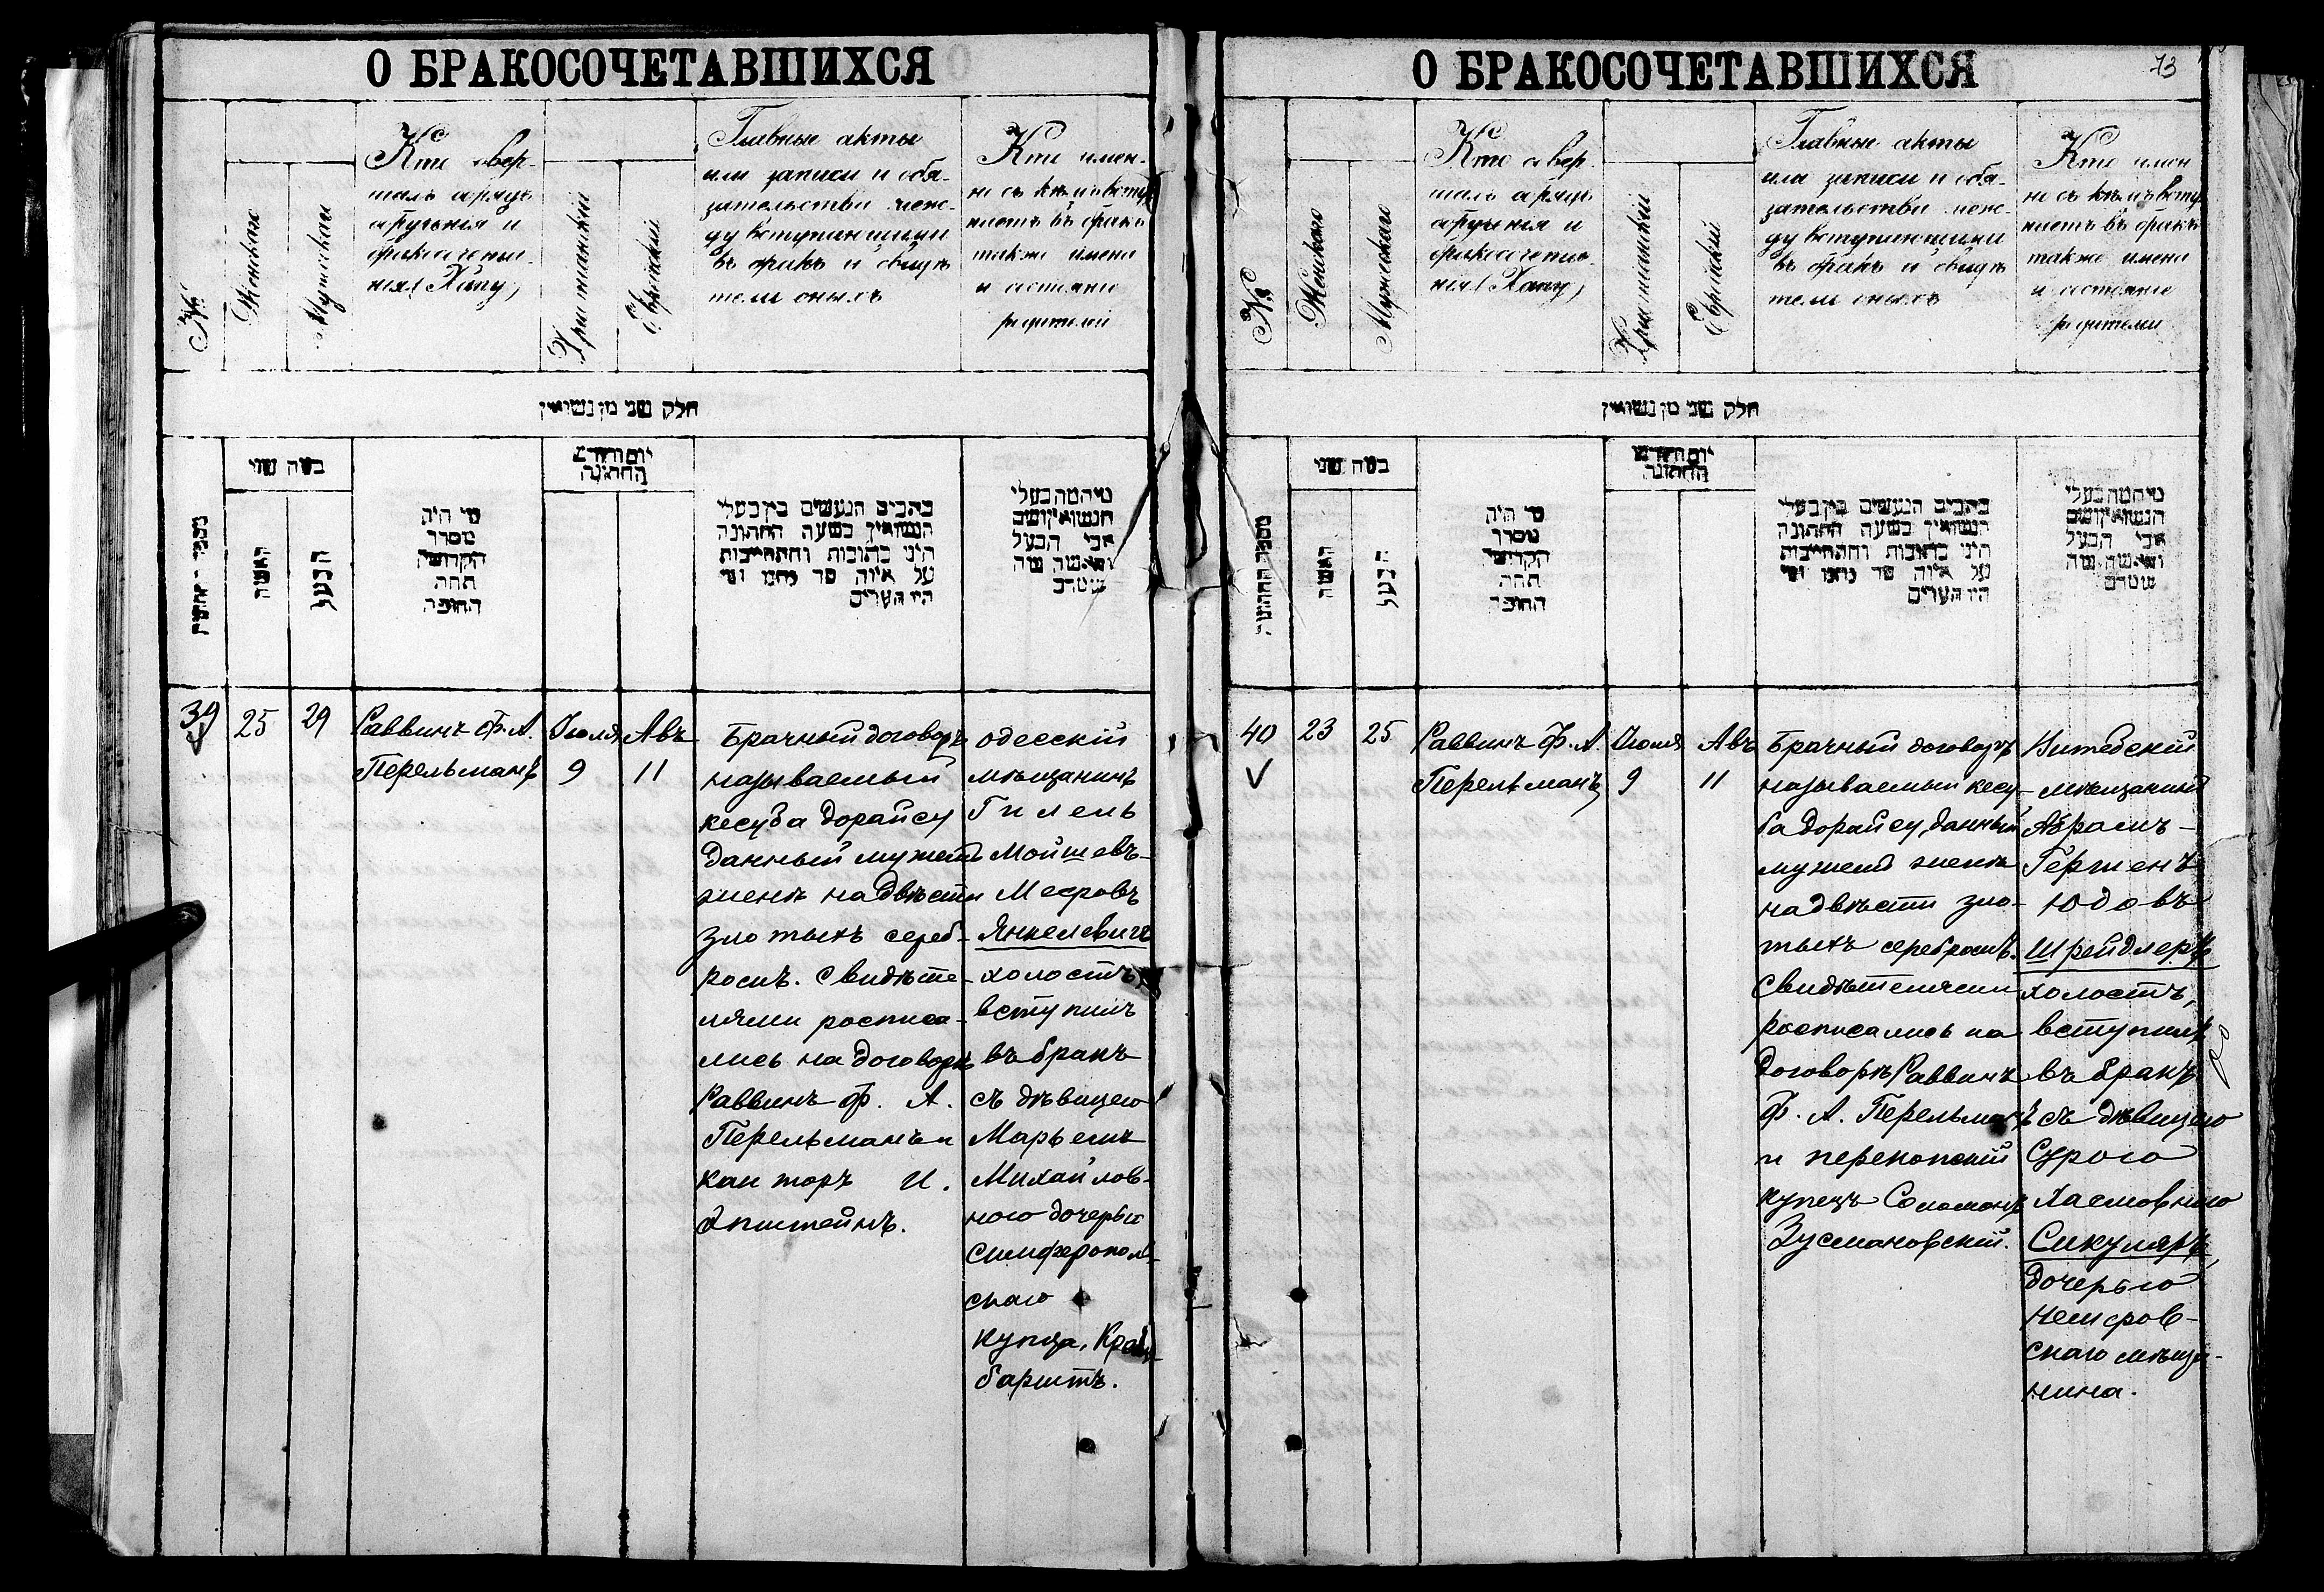 О БРАКОСОЧЕТАВШИХСЯ
№
Женскаго
Мужескаго
Кто совер-
шалъ обрядъ
обрученія и
бракосочета-
нія (Хупу)
Христіанскій
Еврейскій
Главные акты
или записи и обя-
зательства меж-
ду вступающими
въ бракъ и свидѣ
тели оныхъ
Кто имен-
но съ кѣмъ всту
паетъ въ бракъ
также имена
и состояніе
родителей
חלק שני מן נשואין
כמה שני
האשה
הבעל
מי היה
מסדר
הקדושין
תחת
החופה
יום וחדש
החתונה
כתבים הנעשים בין בעלי
הנשואין בשעה החתונה
היני כתובות והתחייבות
על איזה סך נתנו ומי
היו העדים
אבי הבעל
39
25
29
Раввинъ Ф. А.
Перельманъ
Іюля
9
Авъ
11
Брачный договоръ
называемый
кесуба дорайсу
данный мужемъ
женѣ на двѣсти
злотыхъ сереб-
ромъ. Свидѣте-
лями росписа-
лись на договорѣ
Раввинъ Ф. А.
Перельманъ и
канторъ И.
Эпштейнъ.
одесскій
мѣщанинъ
Гилель
Мойшевъ-
Мееровъ
Янкелевичъ
холостъ
вступилъ
въ бракъ
съ дѣвицею
Марьемъ
Михайлов-
ною дочерью
симферополь-
скаго
купца,
баритъ.
О БРАКОСОЧЕТАВШИХСЯ
73
№
Женскаго
Мужескаго
Кто совер-
шалъ обрядъ
обрученія и
бракосочета-
нія (Хупу)
Христіанскій
Еврейскій
Главные акты
или записи и обя-
зательства меж-
ду вступающими
въ бракъ и свидѣ
тели оныхъ
Кто имен
но съ кѣмъ всту
паетъ въ бракъ
также имена
и состояніе
родители
חלק שני מן נשואין
כמה שני
מספר החתונה
האשה
הבעל
מי היה
מסדר
הקדושין
תחת
החופה
יום וחדש
החתונה
כתבים הנעשים בין בעלי
הנשואין בשעה החתונה
היני כתובות והתחייבות
על איזה סך נתנו ומי
היו העדים
אבי הבעל
40
23
25
Раввинъ Ф. А.
Перельманъ
Іюля
9
Авъ
11
Брачный договоръ
называемый кесу-
ба дорайсу, данный
мужемъ женѣ
на двѣсти зло-
тыхъ серебромъ.
Свидѣтелями
росписались на
договорѣ Раввинъ
Ф. А. Перельманъ
и перекопскій
купецъ Соломонъ
Зусмановскій.
Витебскій
мѣщанинъ
Абрамъ-
Гершенъ
Юдовъ
Шрейдлеръ
холостъ,
вступилъ
въ бракъ
съ дѣвицею
Сурою
Хаемовною
Сикуляръ,
дочерью
немиров-
скаго мѣща-
нина.